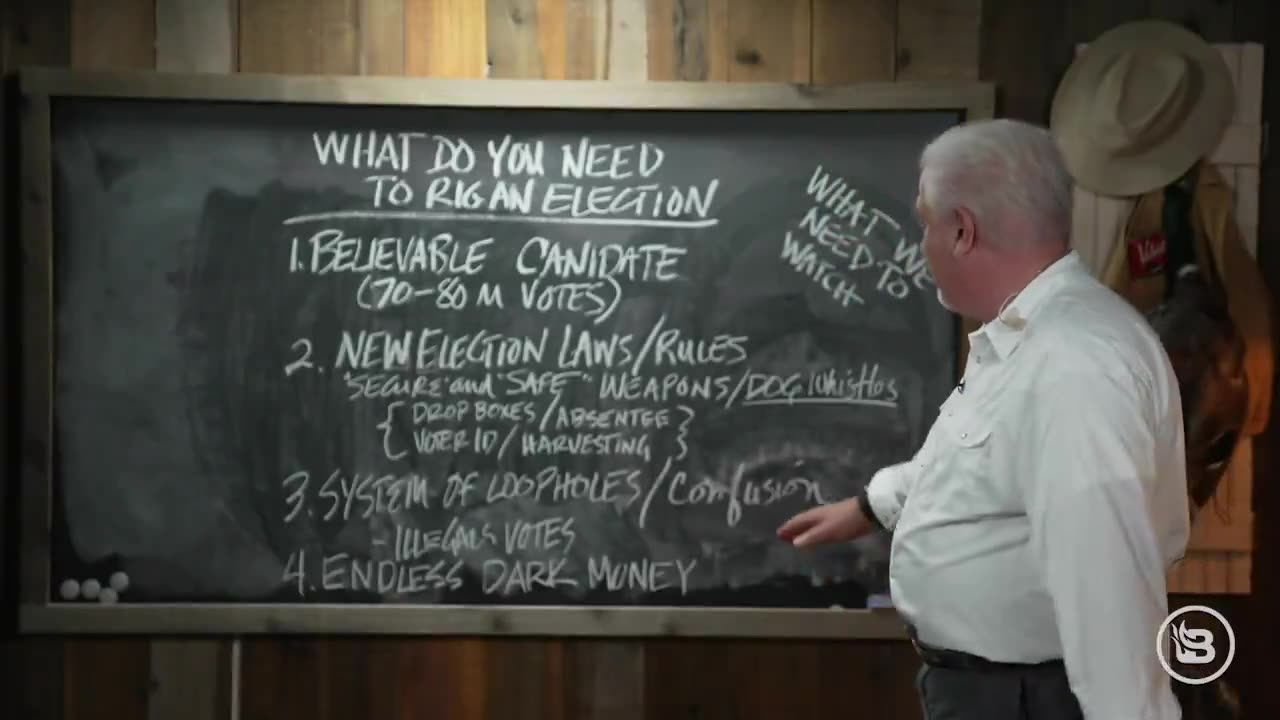 WHAT DO YOU NEED
TO RIG AN ELECTION
1. BELIEVABLE CANIDATE
(70-80 M VOTES)
2. NEW ELECTION LAWS/RULES
"SECURE" and "SAFE" WEAPONS/DOG Whistles
{ DROP BOXES/ABSENTEE }
{ VOTER ID/HARVESTING }
3. SYSTEM OF LOOPHOLES/Confusion
- ILLEGALS VOTES
4. ENDLESS DARK MONEY
WHAT WE
NEED TO
WATCH
B